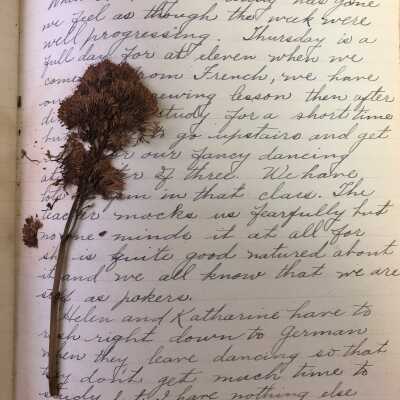 we feel as though the week were
well progressing. Thursday is a
full day for at eleven when we
come from French, we have
our sewing lesson then after
study for a short time
go upstairs and get
our fancy dancing
of three. We have,
in that class. The
teacher mocks us fearfully but
no one minds it at all for
she is quite good natured about
it and we all know that we are
as pokers.
Helen and Katharine have to
rush right down to German
when they leave dancing so that
they don't get much time to
study but I have nothing else